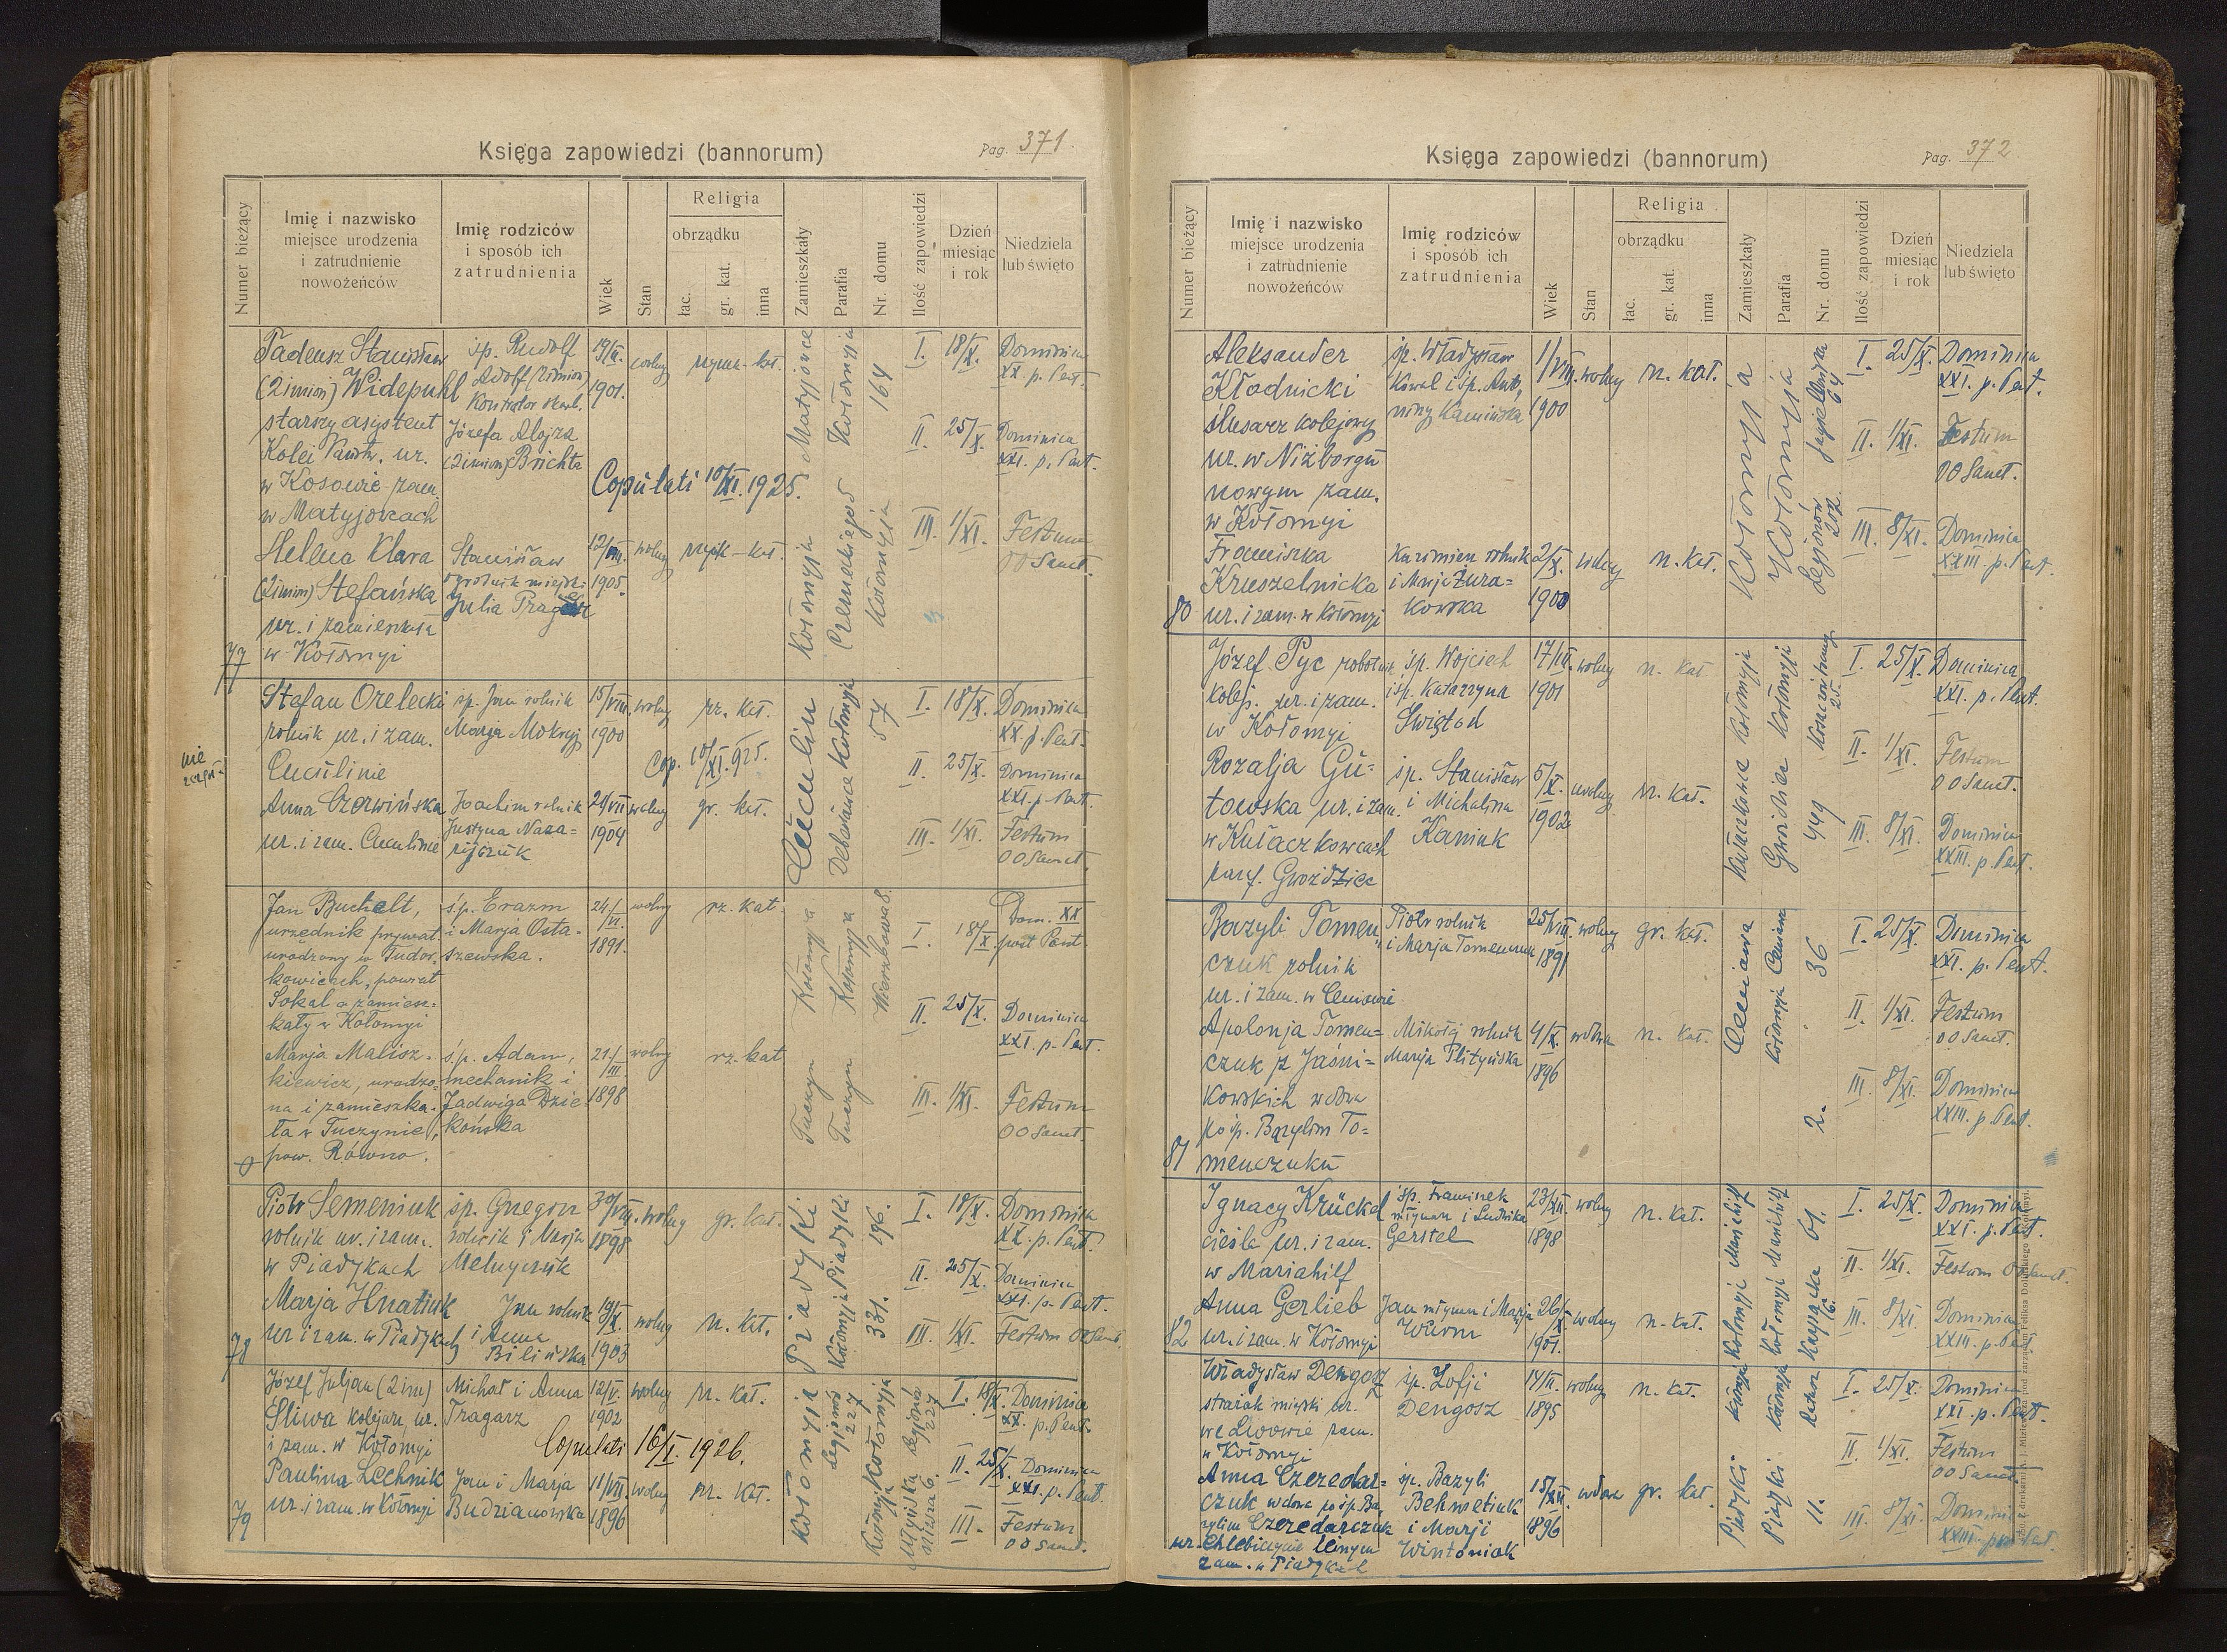 Księga zapowiedzi (bannorum)
Pag. 371
Numer bieżący
Imię i nazwisko
miejsce urodzenia
i zatrudnienie
nowożeńców
Imię rodziców
i sposób ich
zatrudnienia
Wiek
Stan
Religia
obrządku
łac.
gr. kat.
inna
Zamieszkały
Parafia
Nr. domu
Ilość zapowiedzi
Dzień
miesiąc
i rok
Niedziela
lub święto
Tadeusz Stanisław
(2 imion) Widepuhl
starszy asystent
Kolei Państw. ur.
w Kosowie zam.
w Matyjowcach
śp. Rudolf
Adolf (2 imion)
Kontrolor skarb.
Józefa Alojza
(2 imion) Brichta
1901.
wolny
rzym-kat.
Matyjowce
Kołomyja
164
I. 18/X. Dominica
XX. p. Pent.
II. 25/X. Dominica
XXI. p. Pent.
III. 1/XI. Festum
OO Sanct.
Copulati 10/XI. 1925.
77
Helena Klara
(2 imion) Stefańska
ur. i zamieszkała
w Kołomyi
Stanisław
ogrodnik miejsk.
Julia
12/VIII.
1905.
wolny
rzym-kat.
Kołomyja
Kołomyja
Stefan Orelecki
rolnik ur. i zam.
Cuculinie
śp. Jan rolnik
Marja Mokryj
15/VIII.
1900
wolny
rz. kat.
Cop. 10/XI. 925.
nie
Anna Czerwińska
ur. i zam. Cuculinie
Joachim rolnik
Justyna Naza=
ryjczuk
21/VII
1904
wolny
gr. kat.
Cucułin
Debesławce Kołomyja
57
I. 18/X. Dominica
XX. p. Pent.
II. 25/X. Dominica
XXI. p. Pent.
III. 1/XI. Festum
OO Sanct.
Jan Buchelt,
urzędnik prywat.
urodzony w Tudor-
kowicach, powiat
Sokal a zamiesz-
kały w Kołomyi
ś.p. Erazm
i Marja Osta-
szewska.
24/VI
1891.
wolny
rz. kat.
Kołomyja
Kołomyja
Wierzbowa 8.
I. 18/X. Dom. XX
post Pent.
II. 25/X. Dominica
XXI. p. Pent.
III. 1/XI. Festum
OO Sanct.
Marja Malisz-
kiewicz, urodzo-
na i zamieszka-
ła w Tuczynie,
pow. Równo.
ś.p. Adam,
mechanik i
Jadwiga Dzie-
końska
21/III
1898
wolny
rz. kat
Tuczyn
Tuczyn
Piotr Semeniuk
rolnik ur. i zam.
w Piadykach
śp. Gregor
rolnik i Marja
Melnyczuk
30/VIII.
1898
wolny
gr. kat.
Piadyki
Kołomyja Piadyki
196.
331.
I. 18/X. Dominica
XX. p. Pent.
II. 25/X. Dominica
XXI. p. Pent.
III. 1/XI. Festum OO Sanct.
78
Marja Hnatiuk
ur i zam. w Piadykach
Jan rolnik
i Anna
Bilińska
19/IX.
1903
wolny
rz. kat.
Józef Juljan (2 im)
Śliwa kolejarz, ur.
i zam. w Kołomyi
Michał i Anna
Tragarz
12/V.
1902
wolny
rz. kat.
Copulati 16/I. 1926.
Kołomyja
Legjonów
227
Kołomyja
I. 18/X. Dominica
XX. p. Pent.
II. 25/X. Dominica
XXI. p. Pent.
III. Festum
OO Sanct.
79
Paulina Lechnik
ur. i zam. w Kołomyi
Jan i Marja
Budzianowska
11/VII.
1896
wolny
rz. kat.
Księga zapowiedzi (bannorum)
Pag. 372
Numer bieżący
Imię i nazwisko
miejsce urodzenia
i zatrudnienie
nowożeńców
Imię rodziców
i sposób ich
zatrudnienia
Wiek
Stan
Religia
obrządku
łac.
gr. kat.
inna
Zamieszkały
Parafia
Nr. domu
Ilość zapowiedzi
Dzień
miesiąc
i rok
Niedziela
lub święto
Aleksander
Kłodnicki
ślusarz kolejowy
ur. w Niżborgu
nowym zam.
w Kołomyi
śp. Władysław
Kowal i śp. Anto,
niny Kamińska
1/VIII.
1900
wolny
rz. kat.
Kołomyja
Kołomyja
Jagiellońska
64
Legjonów
202.
I. 25/X. Dominica
XXI. p. Pent.
II. 1/XI. Festum
OO Sanct.
III. 8/XI. Dominica
XXIII. p. Pent.
80
Franciszka
Kruszelnicka
ur. i zam. w Kołomyi
Kazimierz rolnik
i Marja Żura=
kowska
2/X.
1900
wolny
rz. kat.
Józef Pyc robotnik
kolej. ur. i zam.
w Kołomyi
śp. Wojciech
i śp. Katarzyna
Świstad
1901
wolny
rz. kat.
Kołomyja
Kołomyja
25.
I. 25/X. Dominica
XXI. p. Pent.
II. 1/XI. Festum
OO Sanct.
III. 8/XI. Dominica
XXIII. p. Pent.
Rozalja Gu=
towska ur. i zam.
w Kułaczkowcach
par. Gwoździec
śp. Stanisław
i Michalina
Kaniuk
5/X.
1902
wolny
rz. kat.
Kułaczkowce
Gwoździec
449
Bazyli Tomen„
czuk rolnik
ur. i zam. w Ceniawie
Piotr rolnik
i Marja Tomenczuk
25/VIII.
1891
wolny
gr. kat.
Ceniawa
Kołomyja Ceniawa
36
2.
I. 25/X. Dominica
XXI. p. Pent.
II. 1/XI. Festum
OO Sanct.
III. 8/XI. Dominica
XXIII. p. Pent.
81
Apolonja Tomen=
czuk z Jaśni=
kowskich wdowa
po śp. Bazylim To=
menczuku
Mikołaj rolnik
Marja
4/IX.
1896
wdowa
rz. kat.
Ignacy Krückel
cieśla ur. i zam.
w Mariahilf
śp. Franciszek
młynarz i Ludwika
Gerstel
23/XII.
1898
wolny
rz. kat.
Mariahilf
Mariahilf
61.
I. 25/X. Dominica
XXI. p. Pent.
II. 1/XI. Festum OO Sanct.
III. 8/XI. Dominica
XXIII. p. Pent.
82
Anna Gerlieb
ur. i zam. w Kołomyi
Jan młynarz i Marja
Wurm
26/X
1901.
wolny
rz. kat.
Kołomyja
Kołomyja
Karpacka
6.
Władysław Dengosz
strażak miejski ur.
we Lwowie zam.
w Kołomyi
śp. Zofji
Dengosz
14/II.
1895
wolny
rz. kat.
Kołomyja
Kołomyja
Ratusz
I. 25/X. Dominica
XXI. p. Pent.
II. 1/XI. Festum
OO Sanct.
III. 8/XI. Dominica
XXIII. p. Pent.
Anna Czeredar=
czuk wdowa po śp. Ba,
zylim Czeredarczuk
ur. Chlebiczynie leśnym
zam. w Piadykach
śp. Bazyli
Behmetiuk
i Marji
Wintoniak
15/XII.
1896
wdowa
gr. kat.
Piadyki
Piadyki
11.